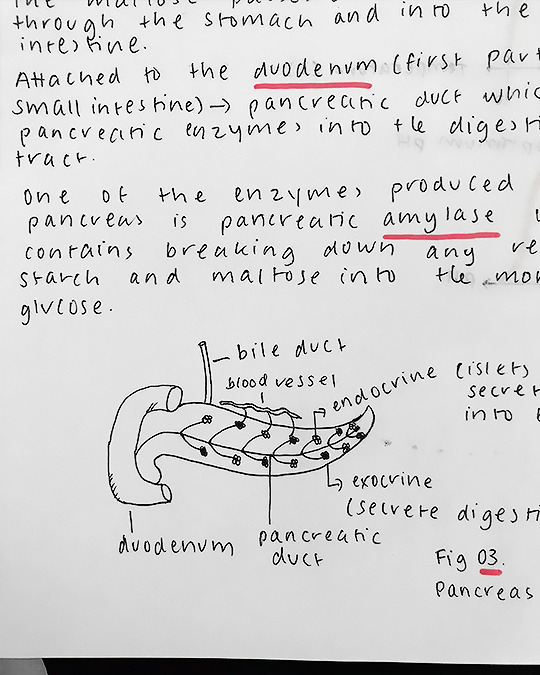 the maltose
through the stomach and into the
intestine.
Attached to the duodenum (first part
small intestine) → pancreatic duct whic
pancreatic enzymes into the digesti
tract.
one of the enzymes produced
pancreas is pancreatic amylase
contains breaking down any re
starch and maltose into the mon
glucose.
bile duct
blood vessel
endocrine (islets
secret
into
exocrine
(secrete digesti
duodenum
pancreatic
duct
Fig 03.
Pancreas